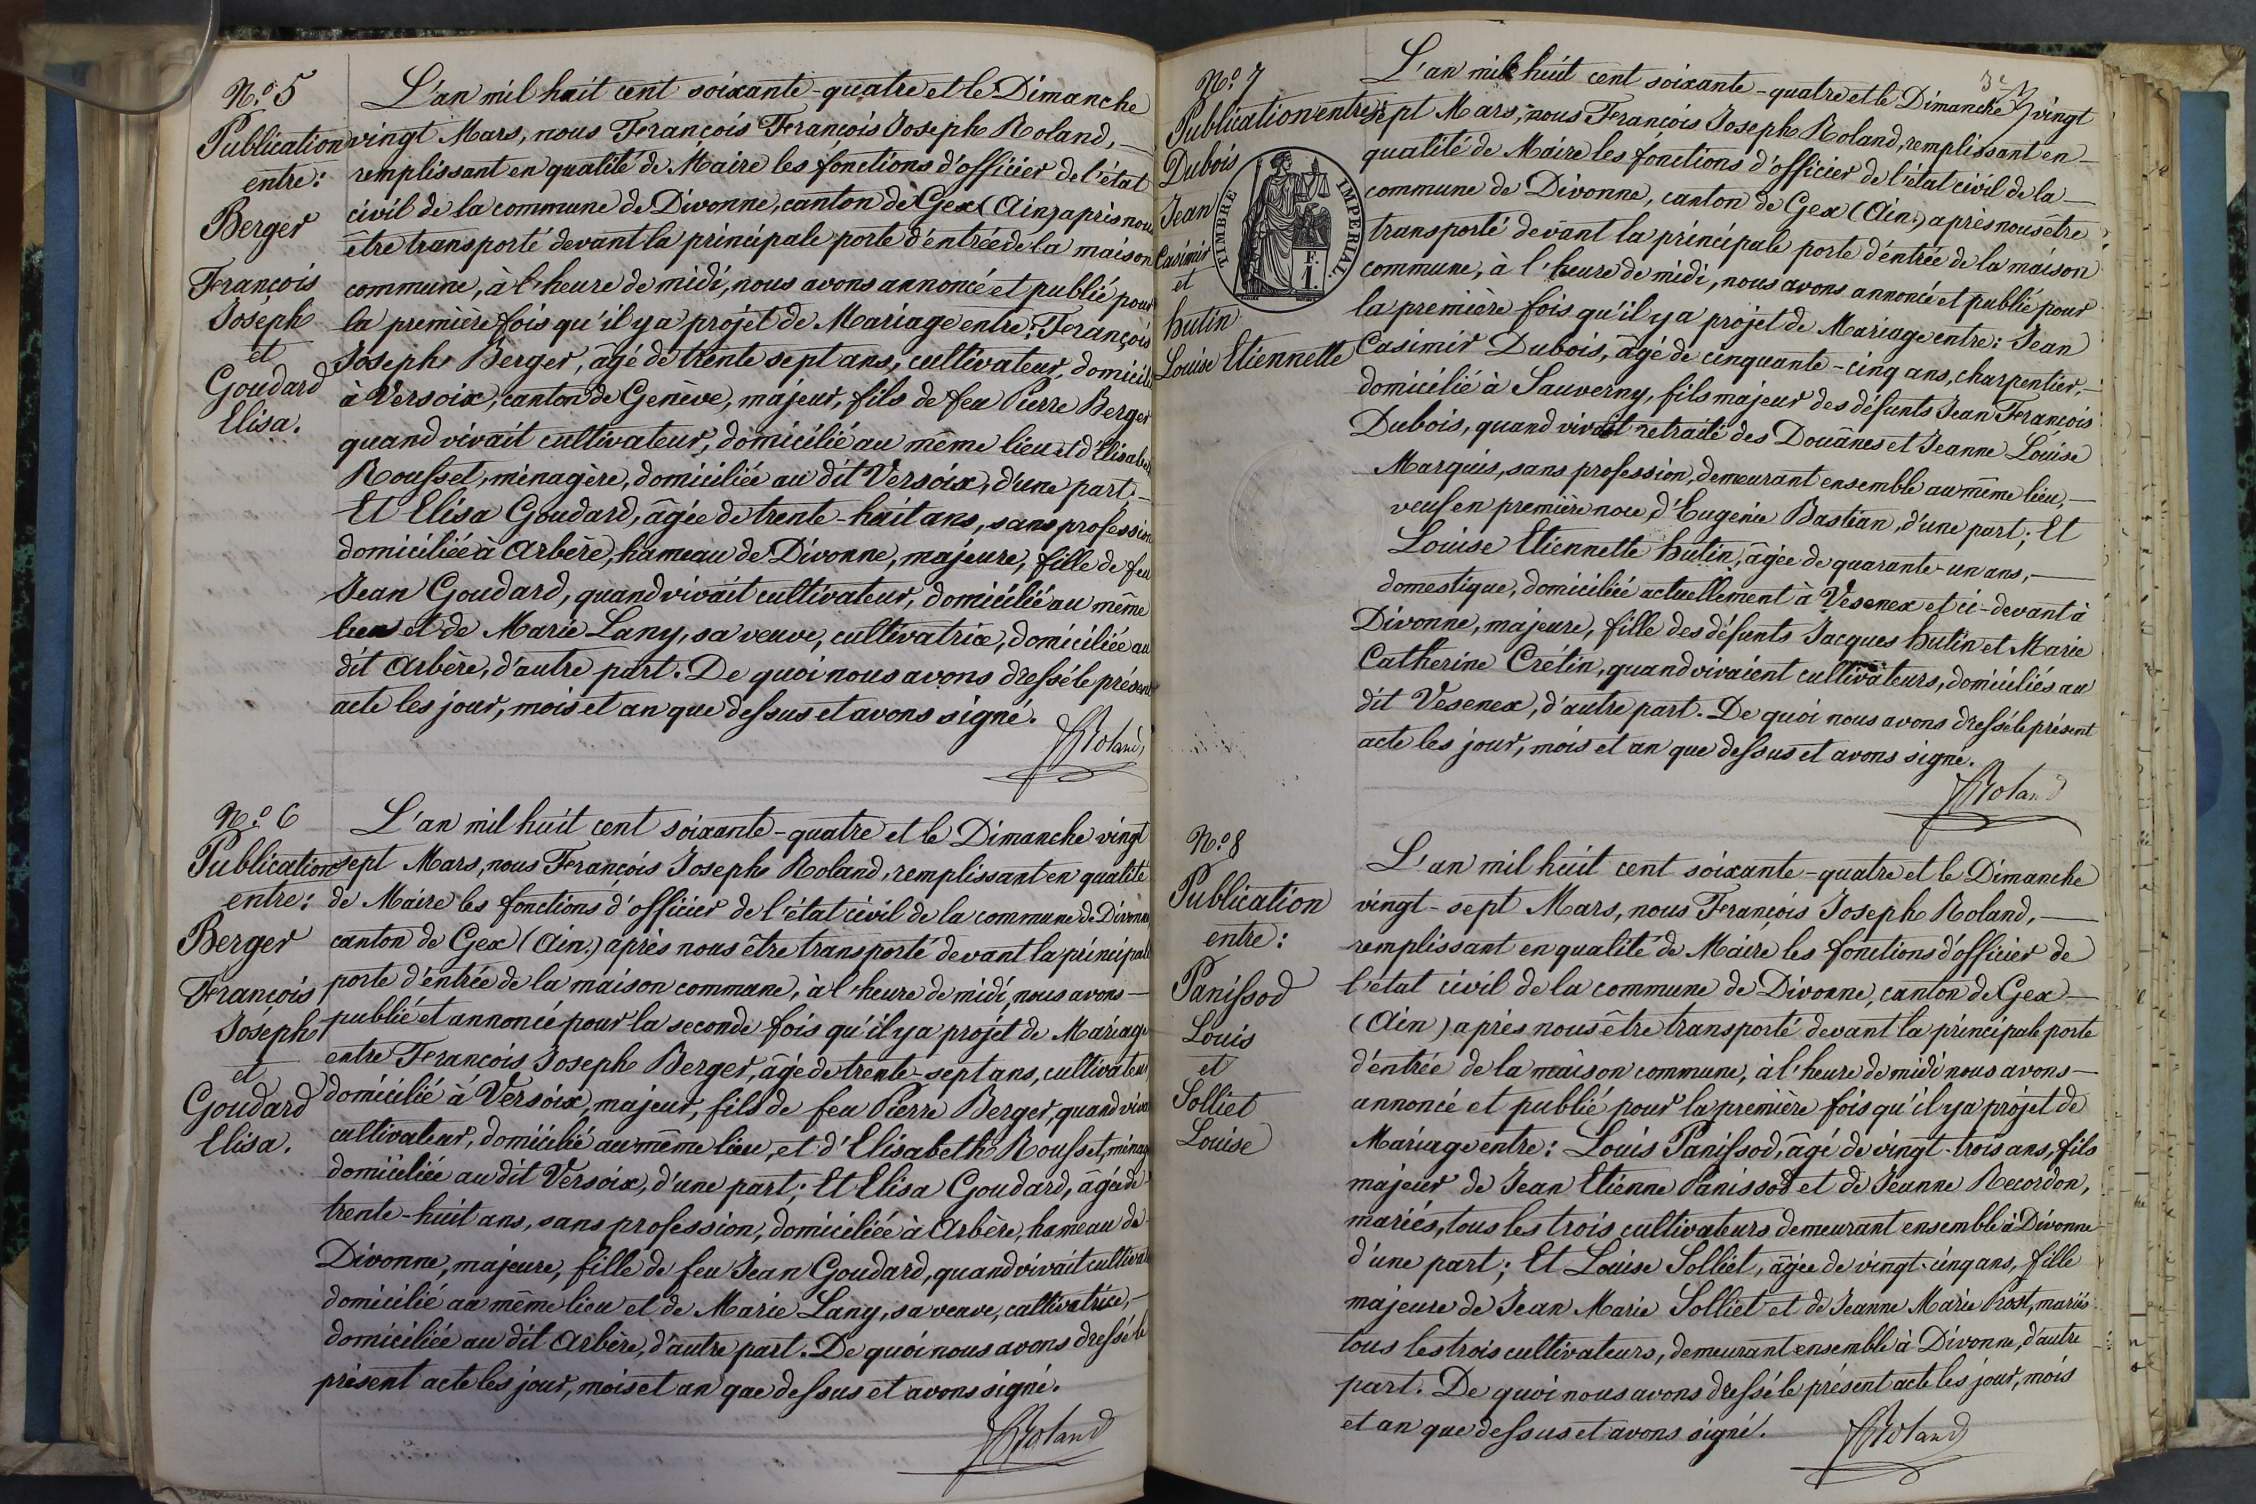 N.º 5
Publication
entre:
Berger
François
Joseph
et
Goudard
Elisa.
L'an mil huit cent soixante-quatre et le Dimanche
vingt Mars, nous François François Joseph Roland,
remplissant en qualité de Maire les fonctions d'officier de l'état
civil de la commune de Divonne, canton de Gex (Ain) après nous
être transporté devant la principale porte d'entrée de la maison
commune, à l'heure de midi, nous avons annoncé et publié pour
la première fois qu'il y a projet de Mariage entre: François
Joseph Berger, âgé de trente sept ans, cultivateur, domicilié
à Versoix, canton de Genève, majeur, fils de feu Pierre Berger
quand vivait cultivateur, domicilié au même lieu et d'Elisabeth
Rousset, ménagère, domiciliée au dit Versoix, d'une part.
Et Elisa Goudard, âgée de trente-huit ans, sans profession
domiciliée à Arbère, hameau de Divonne, majeure, fille de feu
Jean Goudard, quand vivait cultivateur, domicilié au même
lieu et de Marie Lany, sa veuve, cultivatrice, domiciliée au
dit Arbère, d'autre part. De quoi nous avons dressé le présent
acte les jour, mois et an que dessus et avons signé.
Roland
N.º 6
Publication
entre:
Berger
François
Joseph
et
Goudard
Elisa.
L'an mil huit cent soixante-quatre et le Dimanche vingt
sept Mars, nous François Joseph Roland, remplissant en qualité
de Maire les fonctions d'officier de l'état civil de la commune de Divonne
canton de Gex (Ain.) après nous être transporté devant la principale
porte d'entrée de la maison commune, à l'heure de midi, nous avons
publié et annoncé pour la seconde fois qu'il y a projet de Mariage
entre François Joseph Berger, âgé de trente-sept ans, cultivateur
domicilié à Versoix, majeur, fils de feu Pierre Berger, quand vivait
cultivateur, domicilié au même lieu, et d'Elisabeth Rousset, ménag
domiciliée au dit Versoix, d'une part; Et Elisa Goudard, âgée de
trente-huit ans, sans profession, domiciliée à Arbère, hameau de
Divonne, majeure, fille de feu Jean Goudard, quand vivait cultivat
domicilié au même lieu et de Marie Lany, sa veuve, cultivatrice,
domiciliée au dit Arbère, d'autre part. De quoi nous avons dressé le
présent acte les jour, mois et an que dessus et avons signé.
Roland
N.º 7
Publication entre
Dubois
Jean
Casimir
et
hutin
Louise Etiennette
TIMBRE IMPERIAL.
F.
1.
L'an mil huit cent soixante-quatre et le Dimanche vingt
sept Mars, nous François Joseph Roland, remplissant en
qualité de Maire les fonctions d'officier de l'état civil de la
commune de Divonne, canton de Gex (Ain.) après nous être
transporté devant la principale porte d'entrée de la maison
commune, à l'heure de midi, nous avons annoncé et publié pour
la première fois qu'il y a projet de Mariage entre: Jean
Casimir Dubois, âgé de cinquante-cinq ans, charpentier,
domicilié à Sauverny, fils majeur des défunts Jean François
Dubois, quand vivait retraité des Douânes et Jeanne Louise
Marquis, sans profession, demeurant ensemble au même lieu,
veuf en première noce, d'Eugénie Bastian, d'une part; Et
Louise Etiennette hutin, âgée de quarante-un ans,
domestique, domiciliée actuellement à Vesenex et ci-devant à
Divonne, majeure, fille des défunts Jacques hutin et Marie
Catherine Crétin, quand vivaient cultivateurs, domiciliés au
dit Vesenex, d'autre part. De quoi nous avons dressé le présent
acte les jour, mois et an que dessus et avons signé.
Roland
N.º 8
Publication
entre:
Panissod
Louis
et
Solliet
Louise
L'an mil huit cent soixante-quatre et le Dimanche
vingt-sept Mars, nous François Joseph Roland,
remplissant en qualité de Maire les fonctions d'officier de
l'état civil de la commune de Divonne, canton de Gex
(Ain) après nous être transporté devant la principale porte
d'entrée de la maison commune, à l'heure de midi nous avons
annoncé et publié pour la première fois qu'il y a projet de
Mariage entre: Louis Panissod, âgé de vingt-trois ans, fils
majeur de Jean Etienne Panissod et de Jeanne Recordon,
mariés, tous les trois cultivateurs demeurant ensemble à Divonne
d'une part; Et Louise Solliet, âgée de vingt-cinq ans, fille
majeure de Jean Marie Solliet et de Jeanne Marie Prost, mariés
tous les trois cultivateurs, demeurant ensemble à Divonne, d'autre
part. De quoi nous avons dressé le présent acte les jour, mois
et an que dessus et avons signé.
Roland